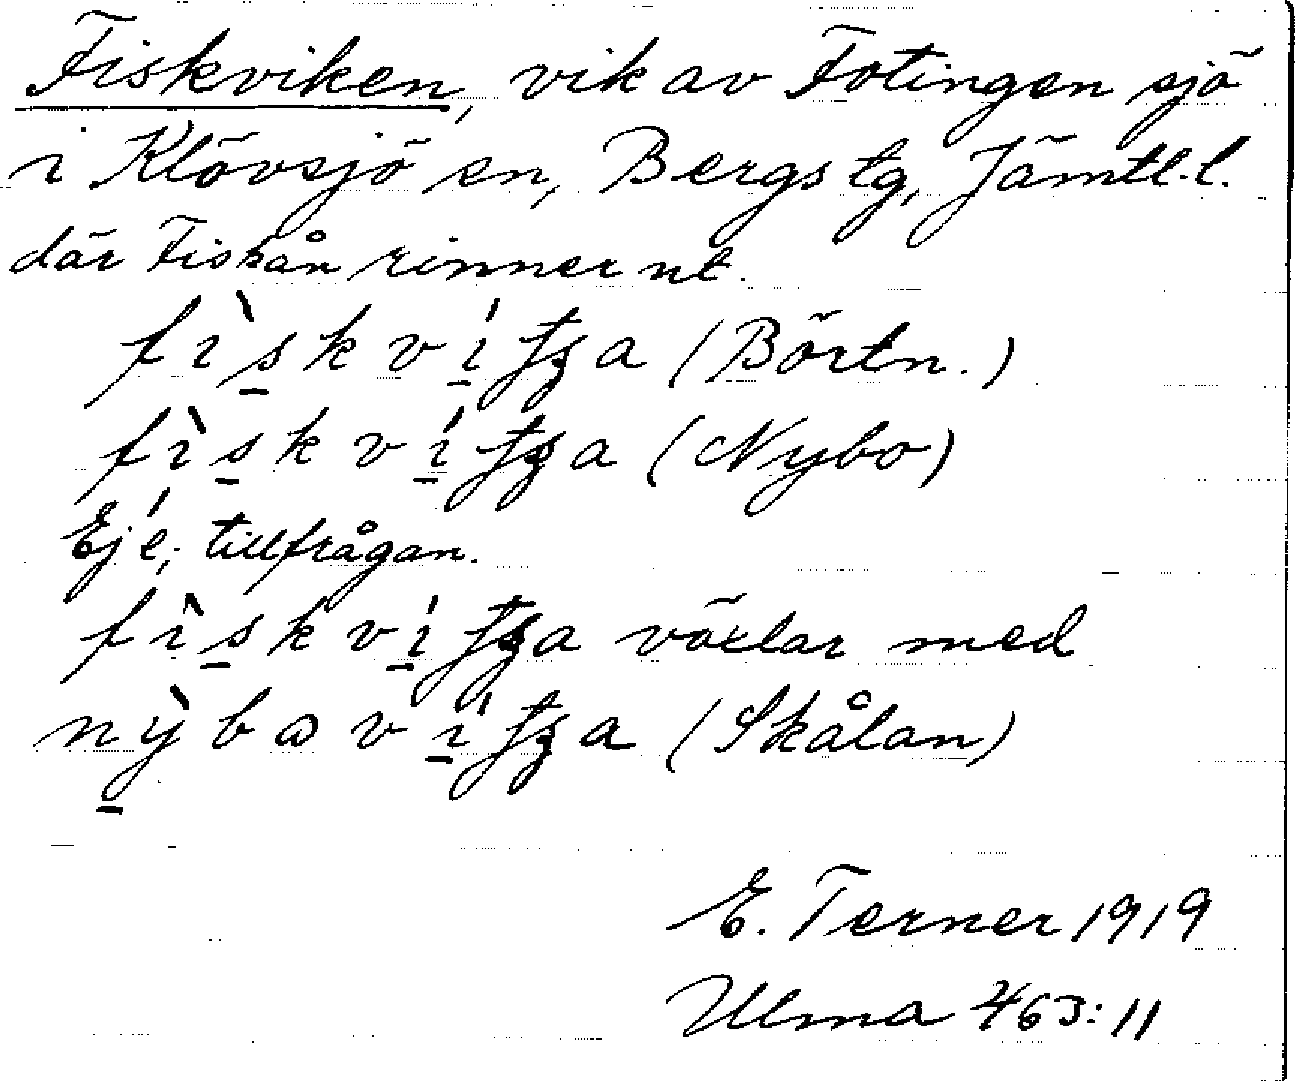 Fiskviken, vik av Fotingen sjö
i Klövsjö sn, Bergs tg, Jämtl. l.
där Fiskån rinner ut.
fìskvíʈʂa (Börtn.)
fìskvíʈʂa (Nybo)
Ej é, tillfrågan.
fìskvíʈʂa växlar med
nỳbavíʈʂa (Skålan)
E. Terner 1919
Ulma 463:11